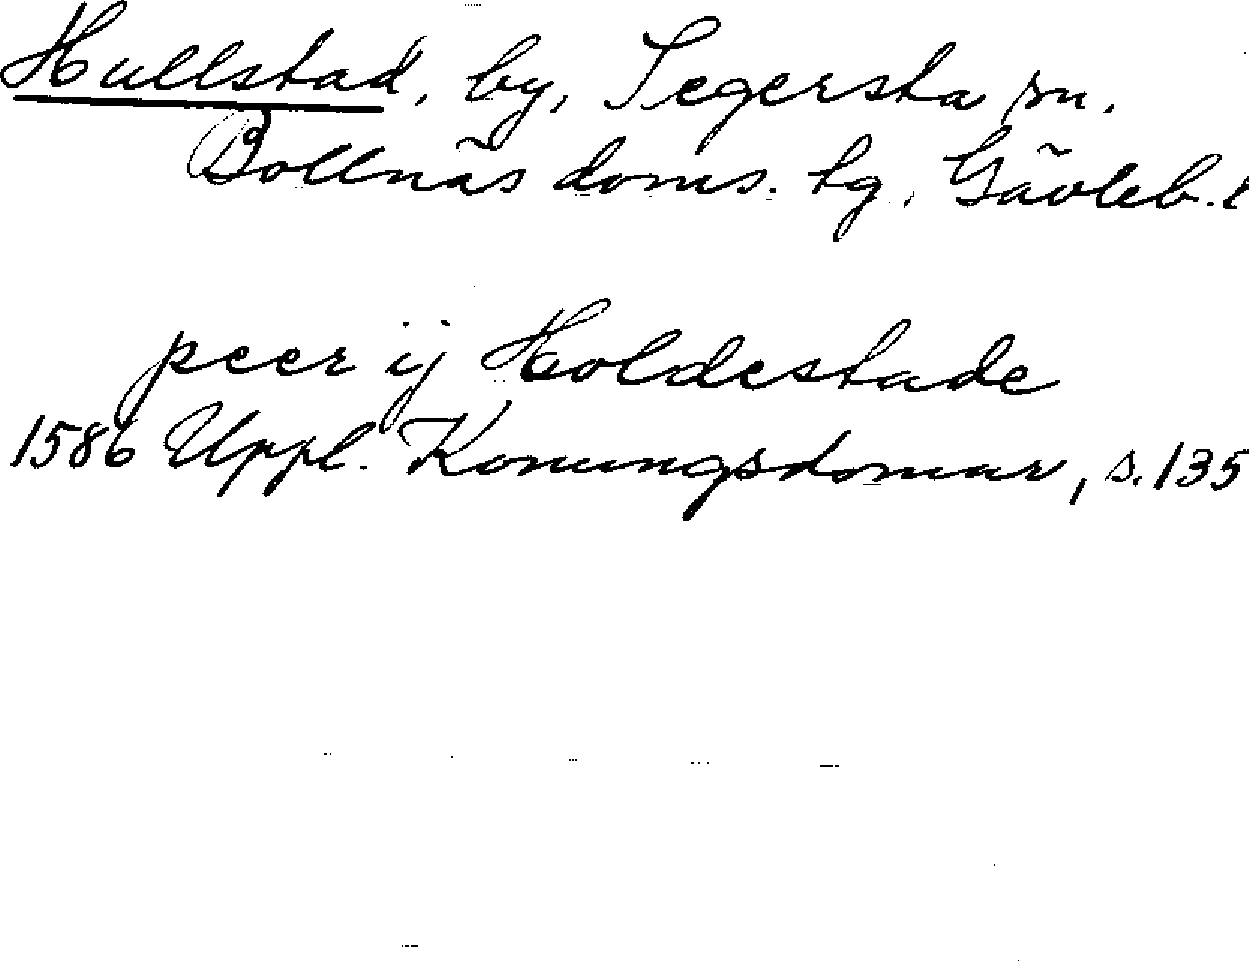 Hullstad, by, Segersta sn.
Bollnäs doms. tg, Gävleb. l
peer ij Holdestade
1586 Uppl. Konungsdomar, s. 135